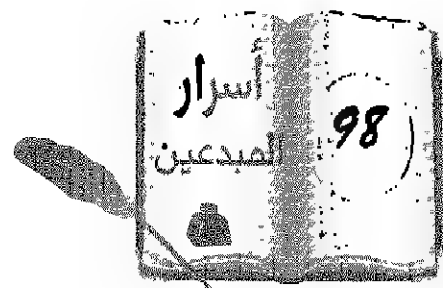 أسرار
المبدعين
98